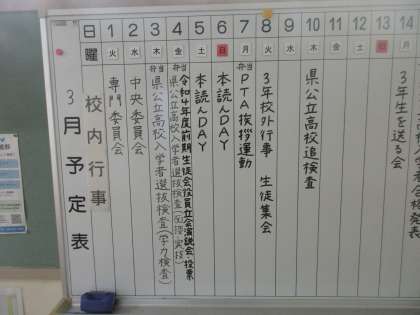 3月予定表
日
曜
校内行事
1
火
専門委員会
2
水
中央委員会
3
木
弁当
県公立高校入学者選抜検査(学力検査)
4
金
弁当
令和4年度前期生徒会役員立会演説会・投票
県公立高校入学者選抜検査
5
土
本読んDAY
6
日
本読んDAY
7
月
弁当
PTA挨拶運動
8
火
3年校外行事 生徒集会
9
水
10
木
県公立高校追検査
11
金
12
土
13
日
14
3年生を送る会
合格発表